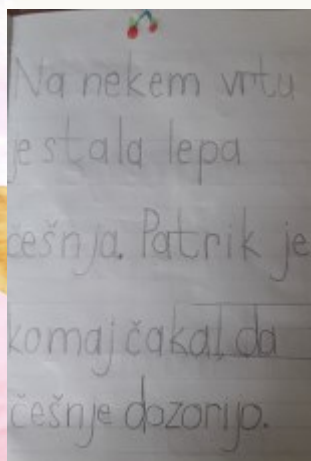 Na nekem vrtu
je stala lepa
češnja. Patrik je
komaj čakal, da
češnje dozorijo.